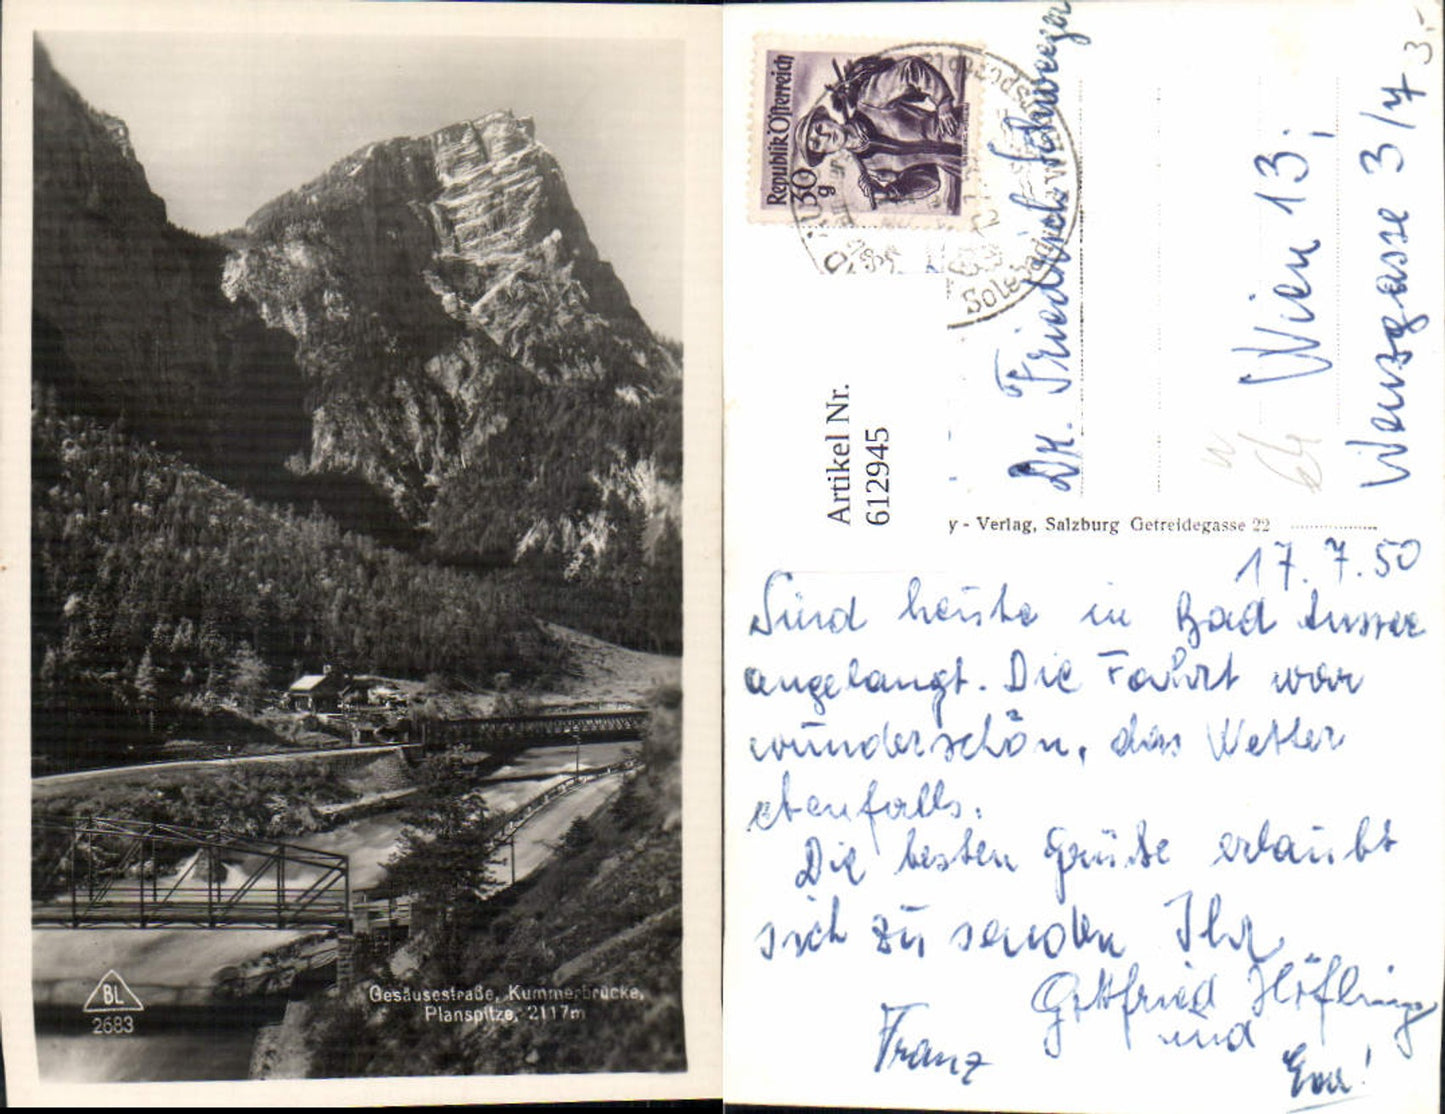 Gesäusestraße, Kummerbrücke,
Planspitze, 2117m
BL
2683
Republik Österreich
30
g
Solebad
Artikel Nr.
612945
Dr. Friedrich Schweeger
Wien 13;
Wenzgasse 3/7
3.-
y - Verlag, Salzburg Getreidegasse 22
17.7.50
Sind heute in Bad Aussee
angelangt. Die Fahrt war
wunderschön, das Wetter
ebenfalls.
Die besten Grüße erlaubt
sich zu senden Ihr
Gottfried Höflinger
und
Franz
Eva!